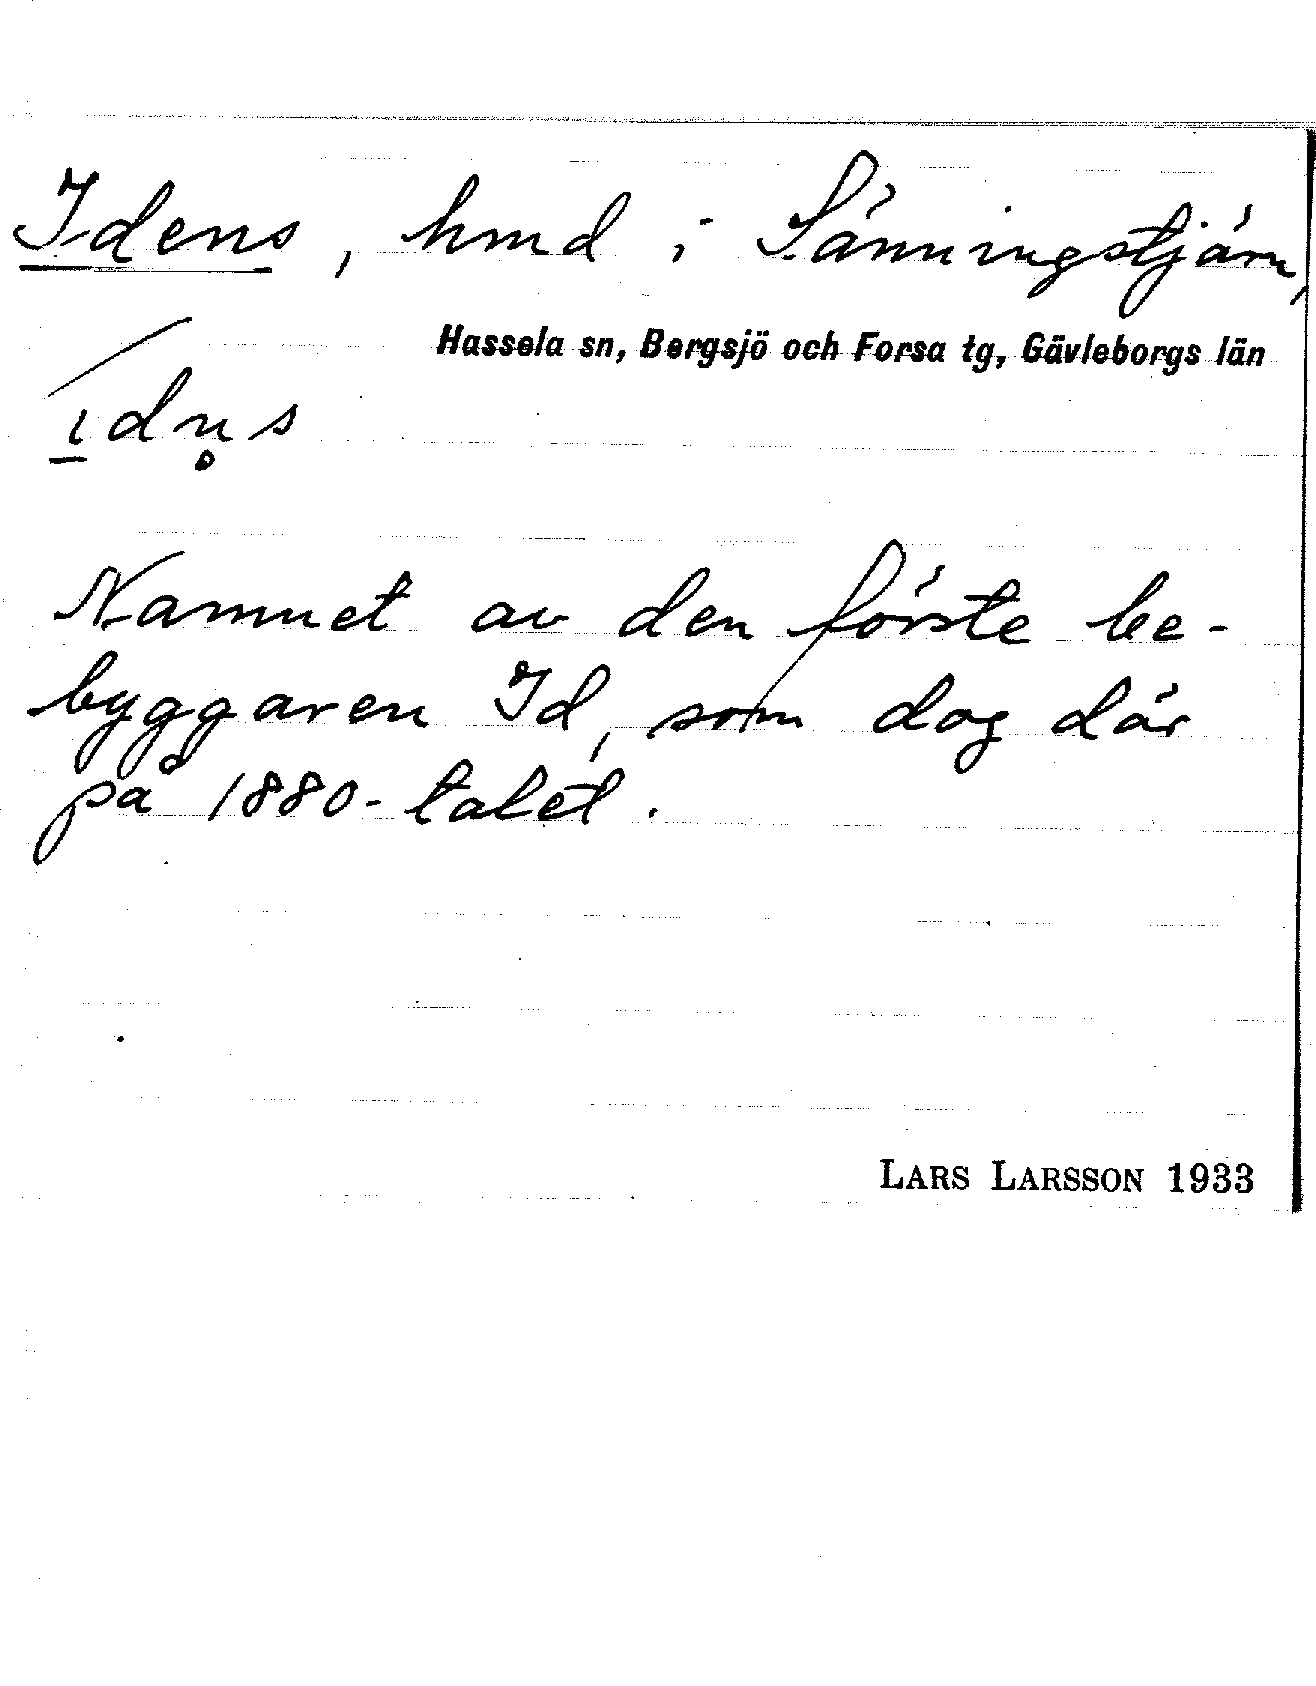 Idens, hmd i Sänningstjärn,
Hassela sn, Bergsjö och Forsa tg, Gävleborgs län
i̲dn̥s
Namnet av den förste be-
byggaren Id, som dog där
på 1880-talet.
LARS LARSSON 1933